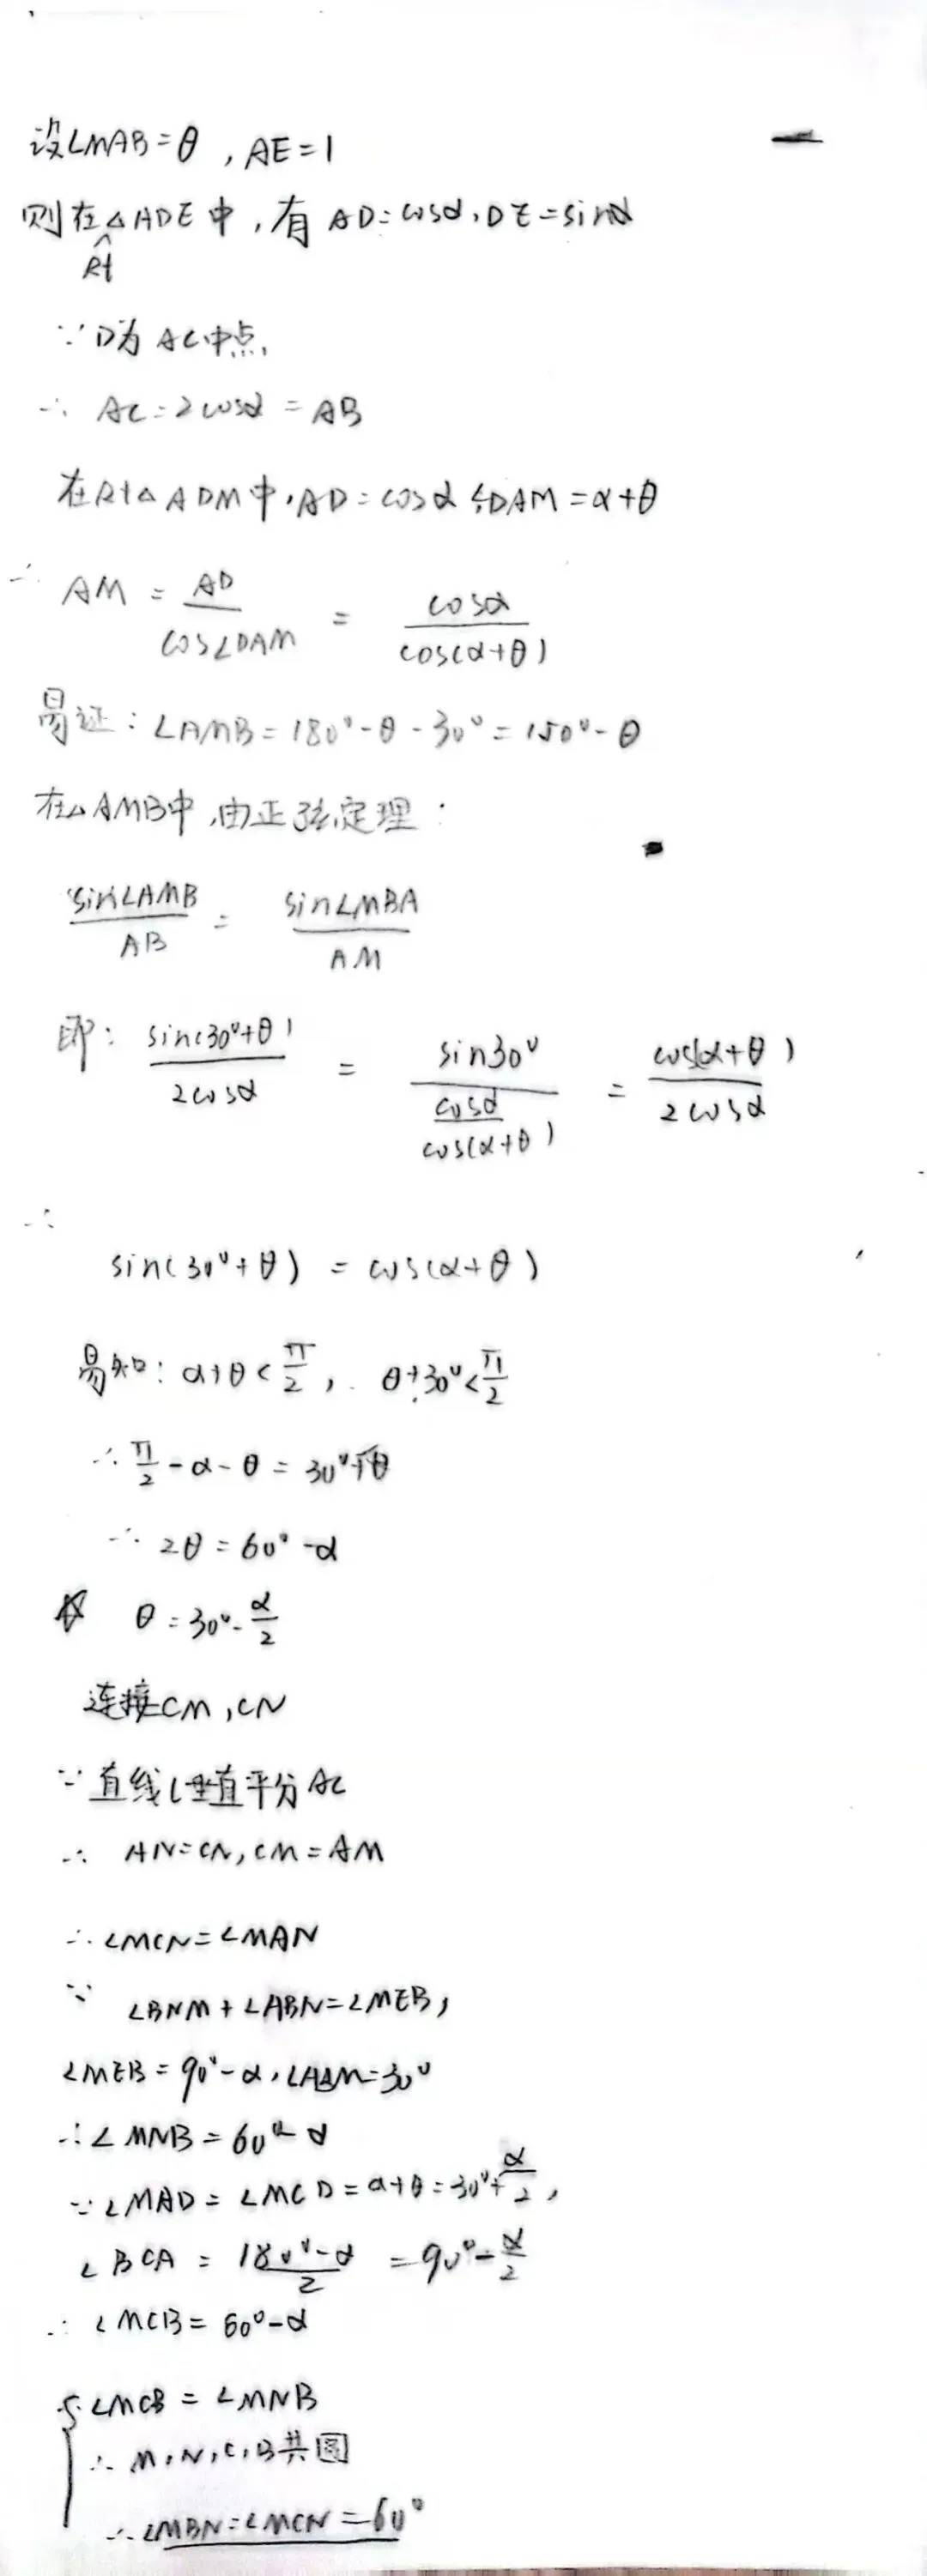 设∠MAB=θ , AE=1
则在Rt△ADE中,有 AD=cosα, DE=sinα
∵D为AC中点,
∴ AC=2cosα = AB
在Rt△ADM中,AD=cosα ∠DAM=α+θ
∴ AM = AD/cos∠DAM = cosα/cos(α+θ)
易证:∠AMB=180°-θ-30°=150°-θ
在△AMB中,由正弦定理:
sin∠AMB/AB = sin∠MBA/AM
即: sin(30°+θ)/2cosα = sin30°/(cosα/cos(α+θ)) = cos(α+θ)/2cosα
∴
sin(30°+θ) = cos(α+θ)
易知: α+θ<π/2, θ+30°<π/2
∴ π/2-α-θ=30°+θ
∴ 2θ=60°-α
θ=30°-α/2
连接CM,CN
∵直线l垂直平分AC
∴ AN=CN, CM=AM
∴ ∠MCN=∠MAN
∵ ∠BNM+∠ABN=∠MEB,
∠MEB=90°-α, ∠ABM=30°
∴∠MNB=60°-α
∵∠MAD=∠MCD=α+θ=30°+α/2,
∠BCA = (180°-α)/2 = 90°-α/2
∴ ∠MCB=60°-α
∠MCB = ∠MNB
∴ M,N,C,B共圆
∴∠MBN=∠MCN=60°